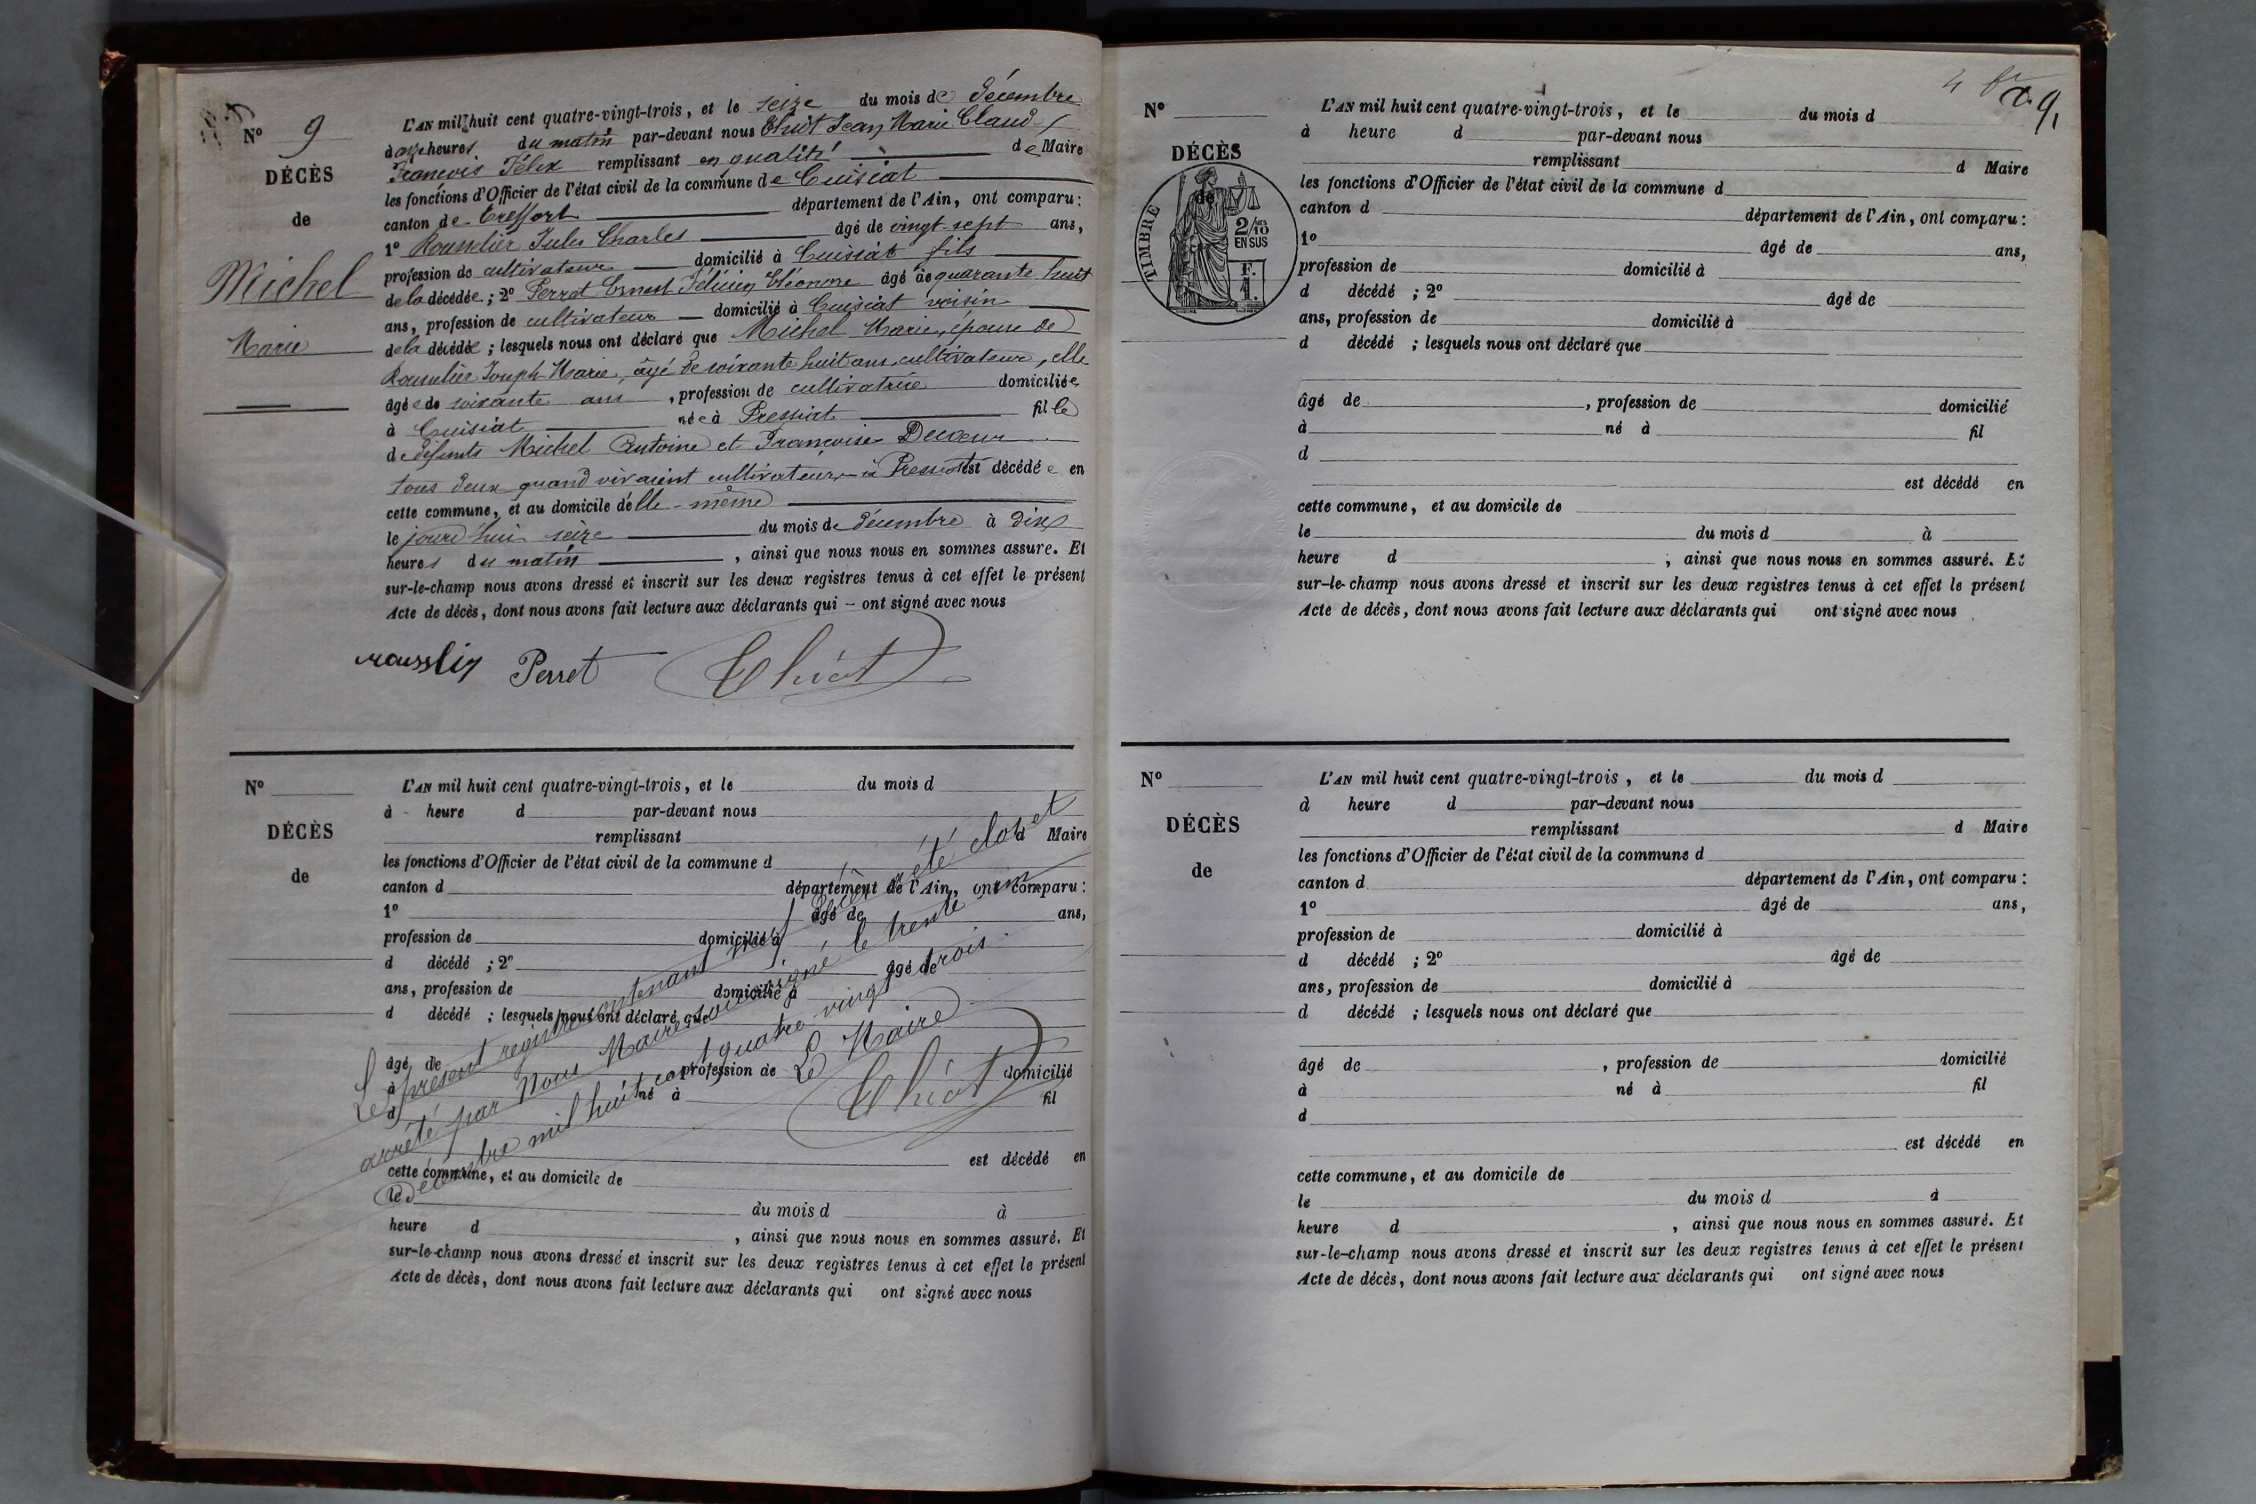 Nº 9
DÉCÈS
de
Michel
Marie
L'AN mil huit cent quatre-vingt-trois, et le seize du mois de décembre
à onze heures du matin par-devant nous Chiot Jean Marie Claude
François Félix remplissant en qualité de Maire
les fonctions d'Officier de l'état civil de la commune de Cuisiat
canton de Treffort département de l'Ain, ont comparu :
1º Jules Charles âgé de vingt-sept ans,
profession de cultivateur domicilié à Cuisiat fils
de la décédée ; 2º Perret Ernest Félicien Éléonore âgé de quarante huit
ans, profession de cultivateur domicilié à Cuisiat voisin
de la décédée ; lesquels nous ont déclaré que Michel Marie, épouse de
Joseph Marie, âgé de soixante huit ans, cultivateur, elle
âgée de soixante ans, profession de cultivatrice domiciliée
à Cuisiat née à Pressiat fille
de défunts Michel Antoine et Françoise Decoeur
tous deux quand vivaient cultivateurs à Pressiat est décédée en
cette commune, et au domicile d'elle-même
le jourd'hui seize du mois de décembre à dix
heures du matin, ainsi que nous nous en sommes assuré. Et
sur-le-champ nous avons dressé et inscrit sur les deux registres tenus à cet effet le présent
Acte de décès, dont nous avons fait lecture aux déclarants qui – ont signé avec nous
Perret Chiot
Nº
DÉCÈS
de
L'AN mil huit cent quatre-vingt-trois, et le du mois d
à heure d par-devant nous
remplissant d Maire
les fonctions d'Officier de l'état civil de la commune d
canton d département de l'Ain, ont comparu :
1º âgé de ans,
profession de domicilié à
d décédé ; 2º âgé de
ans, profession de domicilié à
d décédé ; lesquels nous ont déclaré que
âgé de , profession de domicilié
à né à fil
d
est décédé en
cette commune, et au domicile de
le du mois d à
heure d , ainsi que nous nous en sommes assuré. Et
sur-le-champ nous avons dressé et inscrit sur les deux registres tenus à cet effet le présent
Acte de décès, dont nous avons fait lecture aux déclarants qui ont signé avec nous
Le présent registre contenant neuf été clos et
arrêté par Nous Maire soussigné le trente un
Décembre mil huit cent quatre vingt trois.
Le Maire
Chiot
9,
Nº
DÉCÈS
de
TIMBRE
2/10
EN SUS
F.
1.
L'AN mil huit cent quatre-vingt-trois, et le du mois d
à heure d par-devant nous
remplissant d Maire
les fonctions d'Officier de l'état civil de la commune d
canton d département de l'Ain, ont comparu :
1º âgé de ans,
profession de domicilié à
d décédé ; 2º âgé de
ans, profession de domicilié à
d décédé ; lesquels nous ont déclaré que
âgé de , profession de domicilié
à né à fil
d
est décédé en
cette commune, et au domicile de
le du mois d à
heure d , ainsi que nous nous en sommes assuré. Et
sur-le-champ nous avons dressé et inscrit sur les deux registres tenus à cet effet le présent
Acte de décès, dont nous avons fait lecture aux déclarants qui ont signé avec nous
Nº
DÉCÈS
de
L'AN mil huit cent quatre-vingt-trois, et le du mois d
à heure d par-devant nous
remplissant d Maire
les fonctions d'Officier de l'état civil de la commune d
canton d département de l'Ain, ont comparu :
1º âgé de ans,
profession de domicilié à
d décédé ; 2º âgé de
ans, profession de domicilié à
d décédé ; lesquels nous ont déclaré que
âgé de , profession de domicilié
à né à fil
d
est décédé en
cette commune, et au domicile de
le du mois d à
heure d , ainsi que nous nous en sommes assuré. Et
sur-le-champ nous avons dressé et inscrit sur les deux registres tenus à cet effet le présent
Acte de décès, dont nous avons fait lecture aux déclarants qui ont signé avec nous